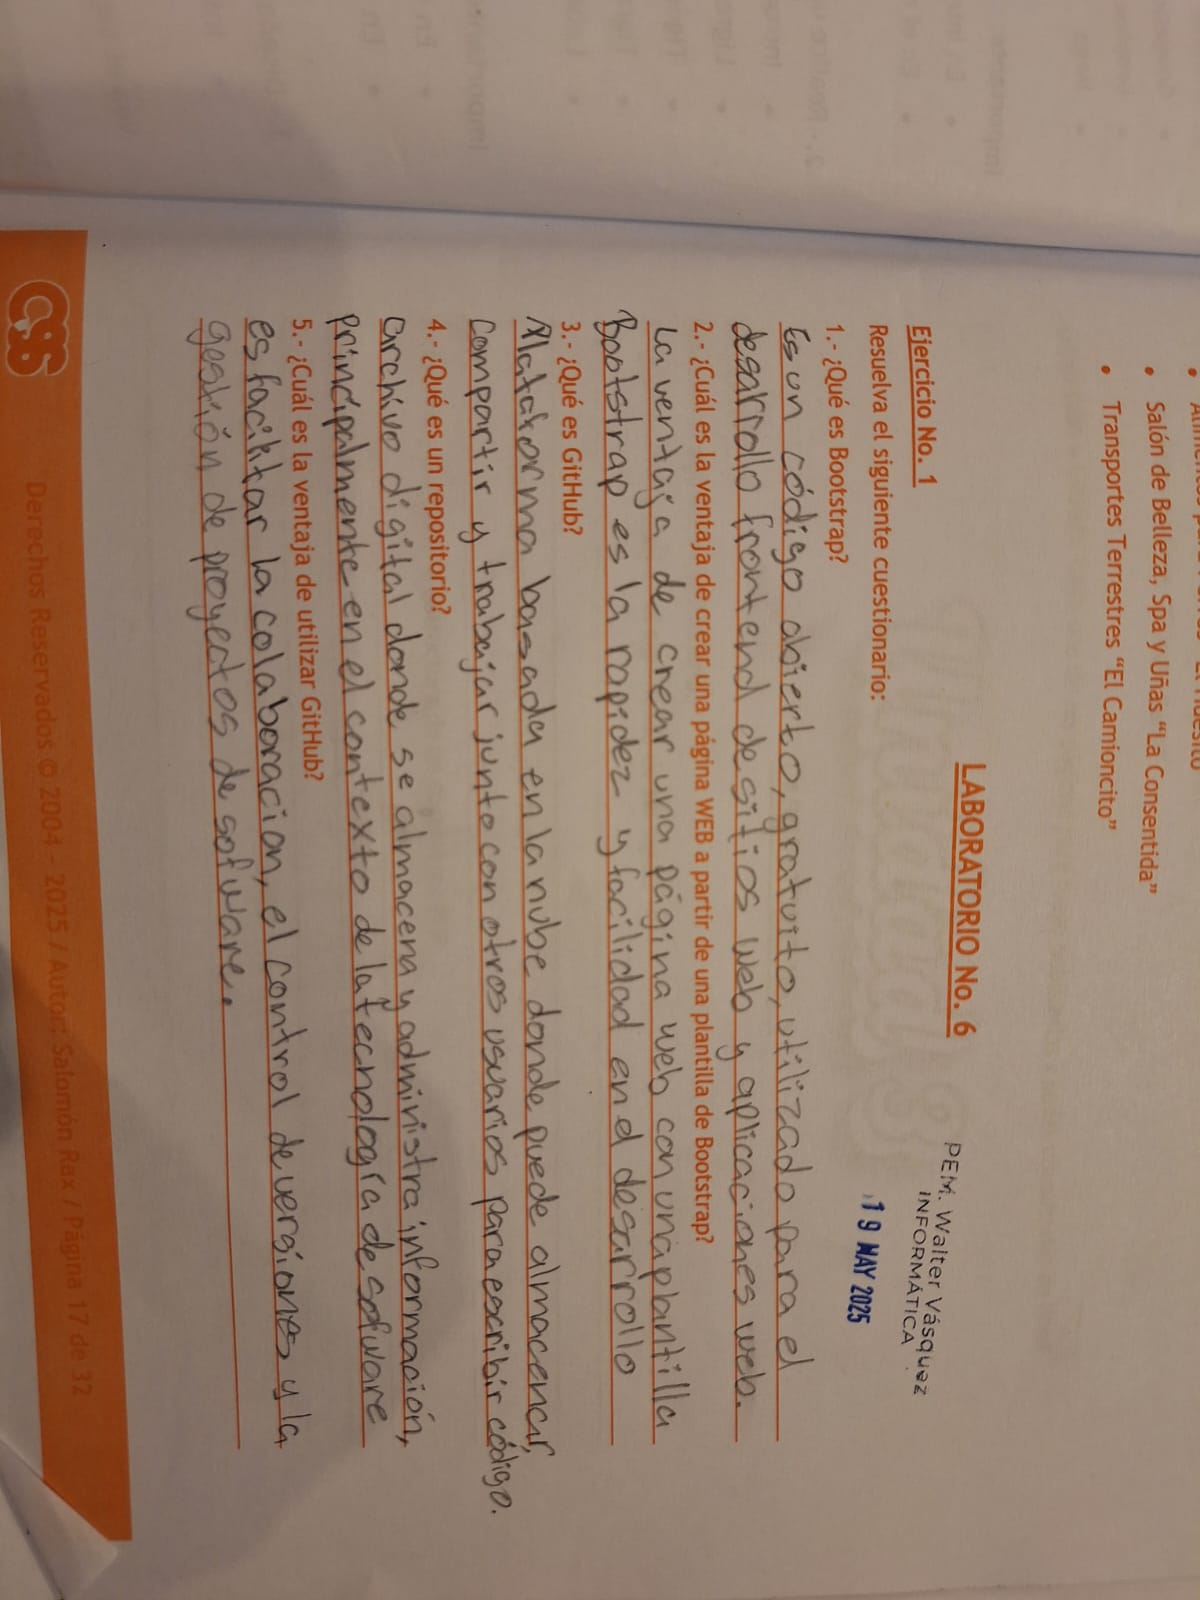 • Salón de Belleza, Spa y Uñas “La Consentida”
• Transportes Terrestres “El Camioncito”
LABORATORIO No. 6
PEM. Walter Vásquez
INFORMÁTICA
19 MAY 2025
Ejercicio No. 1
Resuelva el siguiente cuestionario:
1.- ¿Qué es Bootstrap?
Es un código abierto, gratuito, utilizado para el
desarrollo frontend de sitios web y aplicaciones web.
2.- ¿Cuál es la ventaja de crear una página WEB a partir de una plantilla de Bootstrap?
La ventaja de crear una página web con una plantilla
Bootstrap es la rapidez y facilidad en el desarrollo
3.- ¿Qué es GitHub?
Plataforma basada en la nube donde puede almacenar,
compartir y trabajar junto con otros usuarios para escribir código.
4.- ¿Qué es un repositorio?
archivo digital donde se almacena y administra información,
principalmente en el contexto de la tecnología de sofware
5.- ¿Cuál es la ventaja de utilizar GitHub?
es facilitar la colaboracion, el control de versiones y la
gestión de proyectos de sofware.
Derechos Reservados © 2004 - 2025 / Autor: Salomón Rax / Página 17 de 32